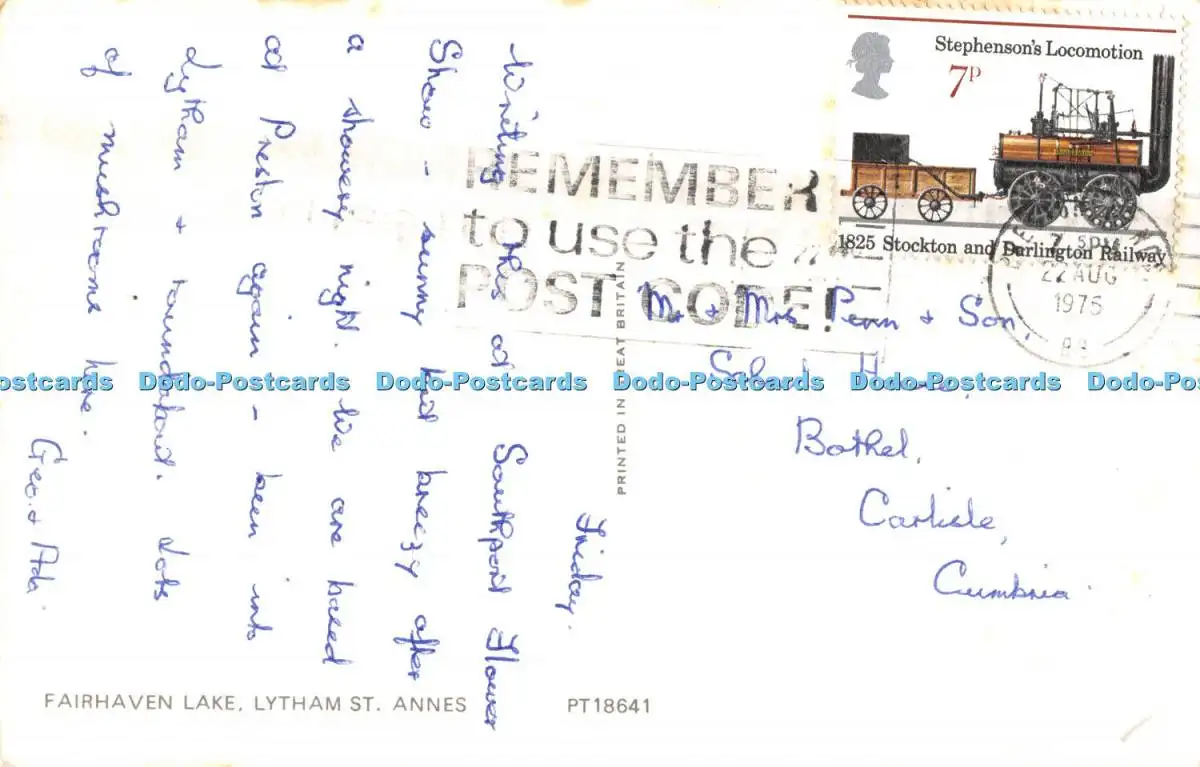 Friday.
Writing this at Southport Flower
Show - sunny but breezy after
a showery night. We are based
at Preston again - been into
Lytham & roundabout. Lots
of mushrooms here.
Geo. & Ada.
Stephenson's Locomotion
7P
1825 Stockton and Darlington Railway
REMEMBER
to use the
POST CODE!
7 15PM
22 AUG
1975
Mr & Mrs Penn & Son,
House,
Bothel,
Carlisle,
Cumbria.
PRINTED IN GREAT BRITAIN
Dodo-Postcards Dodo-Postcards Dodo-Postcards Dodo-Postcards Dodo-Postcards Dodo-Postcards
FAIRHAVEN LAKE, LYTHAM ST. ANNES
PT18641